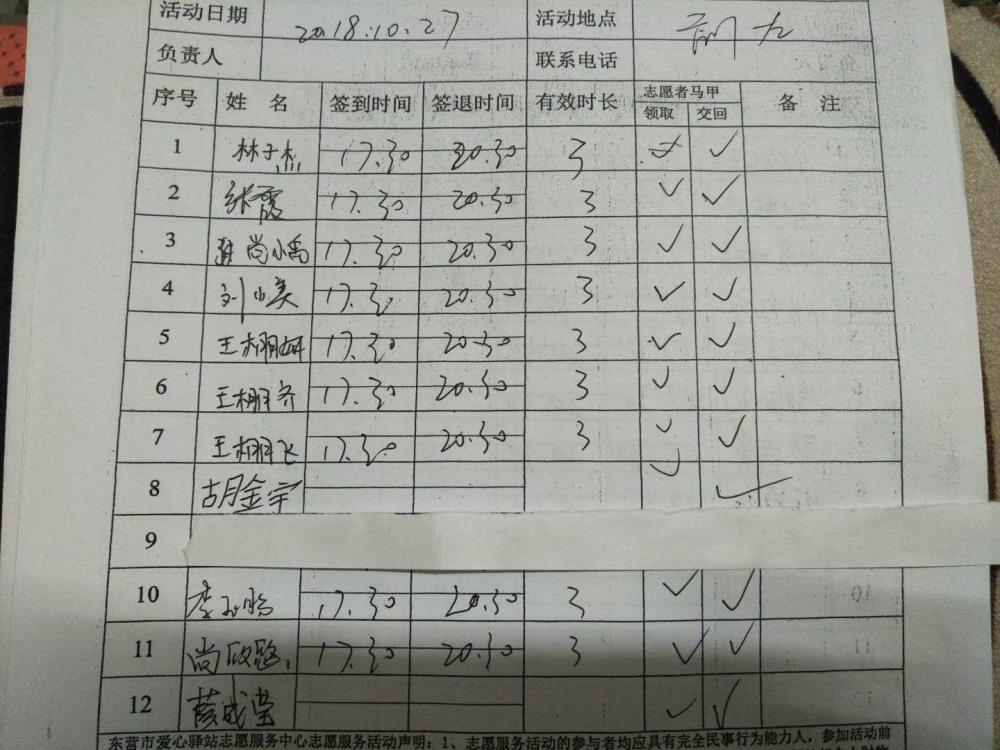 活动日期 2018.10.27 活动地点
负责人 联系电话
序号 姓 名 签到时间 签退时间 有效时长 志愿者马甲 领取 交回 备 注
1 林子杰 17.30 20.30 3 ✓ ✓
2 张霞 17.30 20.30 3 ✓ ✓
3 尚小禹 17.30 20.30 3 ✓ ✓
4 刘小美 17.30 20.30 3 ✓ ✓
5 王栩妍 17.30 20.30 3 ✓ ✓
6 王栩齐 17.30 20.30 3 ✓ ✓
7 王栩飞 17.30 20.30 3 ✓ ✓
8 胡金宇 ✓ ✓
9
10 17.30 20.30 3 ✓ ✓
11 尚 17.30 20.30 3 ✓ ✓
12 ✓ ✓
东营市爱心驿站志愿服务中心志愿服务活动声明：1、志愿服务活动的参与者均应具有完全民事行为能力人，参加活动前